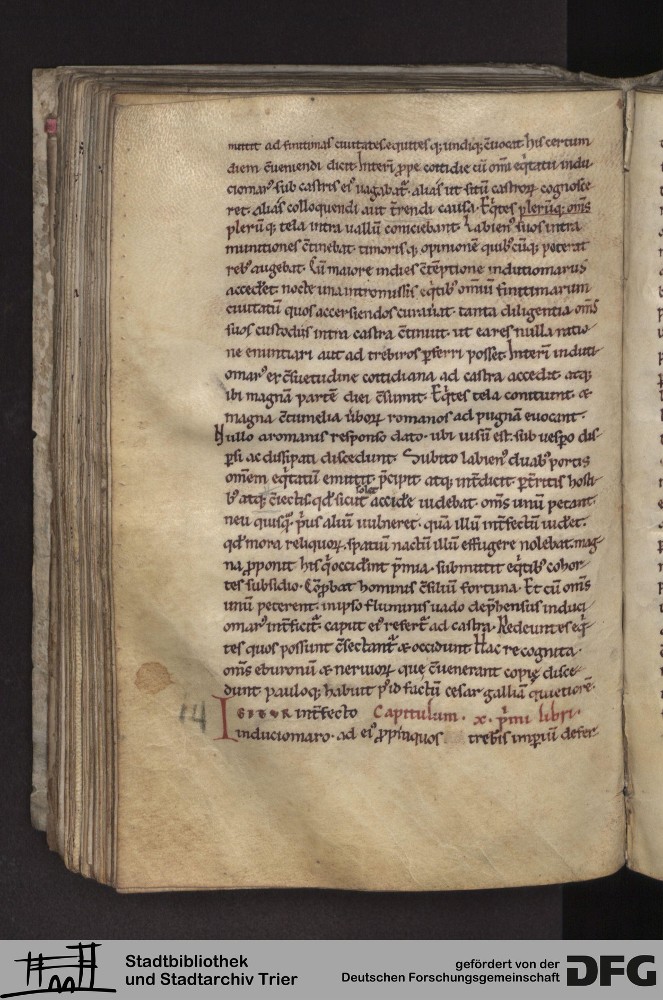 mittit ad finitimas ciuitates. equites q; undiq; c̄uocat. his certum
diem c̄ueniendi dicit. Interī ꝓpe cottidie cū om̄i eq̇tatu indu-
ciomar᾽ sub castris ei᾽ uagabat᷑. alias ut sitū castroꝝ cognosce
ret. alias colloquendi aut t̄rendi causa. Eq̇tes plerūq; om̄s
plerūq; tela intra uallū coniciebant. Labien᾽ suos intra
munitiones c̄tinebat. timoris q; opinionē quib᾽cūq; poterat
reb᾽ augebat. Cū maiore indies c̄tēptione indutiomarus
accedet. nocte una intromissis eq̇tib᾽ omniū finitimarum
ciuitatū quos accersiendos curauat. tanta diligentia om̄s
suos custodiis intra castra c̄tinuit. ut ea res nulla ratio-
ne enuntiari aut ad trebiros ꝑferri posset. Interī induti-
omar᾽ ex c̄suetudine cottidiana ad castra accedit. atq;
ibi magnā partē diei c̄sumit. Eq̇tes tela coniciunt. &
magna c̄tumelia ūboꝝ romanos ad pugnā euocant.
Nullo aromanis responso dato. ubi uisū est. sub uesꝑo dis-
ꝑsi ac dissipati discedunt. Subito labien᾽ duab᾽ portis
om̄em eq̇tatū emittit. p̄cipit atq; int̄dicit. ꝑt̄ritis hosti-
b᾽ atq; c̄iectis. qd̄ sicut accidit
solet
accide uidebat. om̄s unū petant.
neu quisq̄ ṗus aliū uulneret. quā illū int̄fectū uidet.
qd̄ mora reliquoꝝ. spatiū nactū illū effugere nolebat. mag-
na ꝓponit his q̇ occid̄int p̄mia. submittit eq̇tib᾽ cohor-
tes subsidio. Cōꝓbat hominis c̄siliū fortuna. Et cū om̄s
unū peterent. inipso fluminis uado dep̄hensus induci-
omar᾽ int̄ficit᷑. caput ei᾽ refert᷑ ad castra. Redeuntes eq̇-
tes quos possunt c̄sectant᷑ & occidunt. Hac re cognita.
om̄s eburonū & neruioꝝ quę c̄uenerant copię disce-
dunt. pauloq; habuit p᾽ id factū cesar galliā quietiorē.
INterfecto Capitulum. x. ṗmi libri.
inducionaro. ad ei᾽ ꝓpinquos trebis imperiū defer-
14
Stadtbibliothek
und Stadtarchiv Trier
gefördert von der
Deutschen Forschungsgemeinschaft
DFG